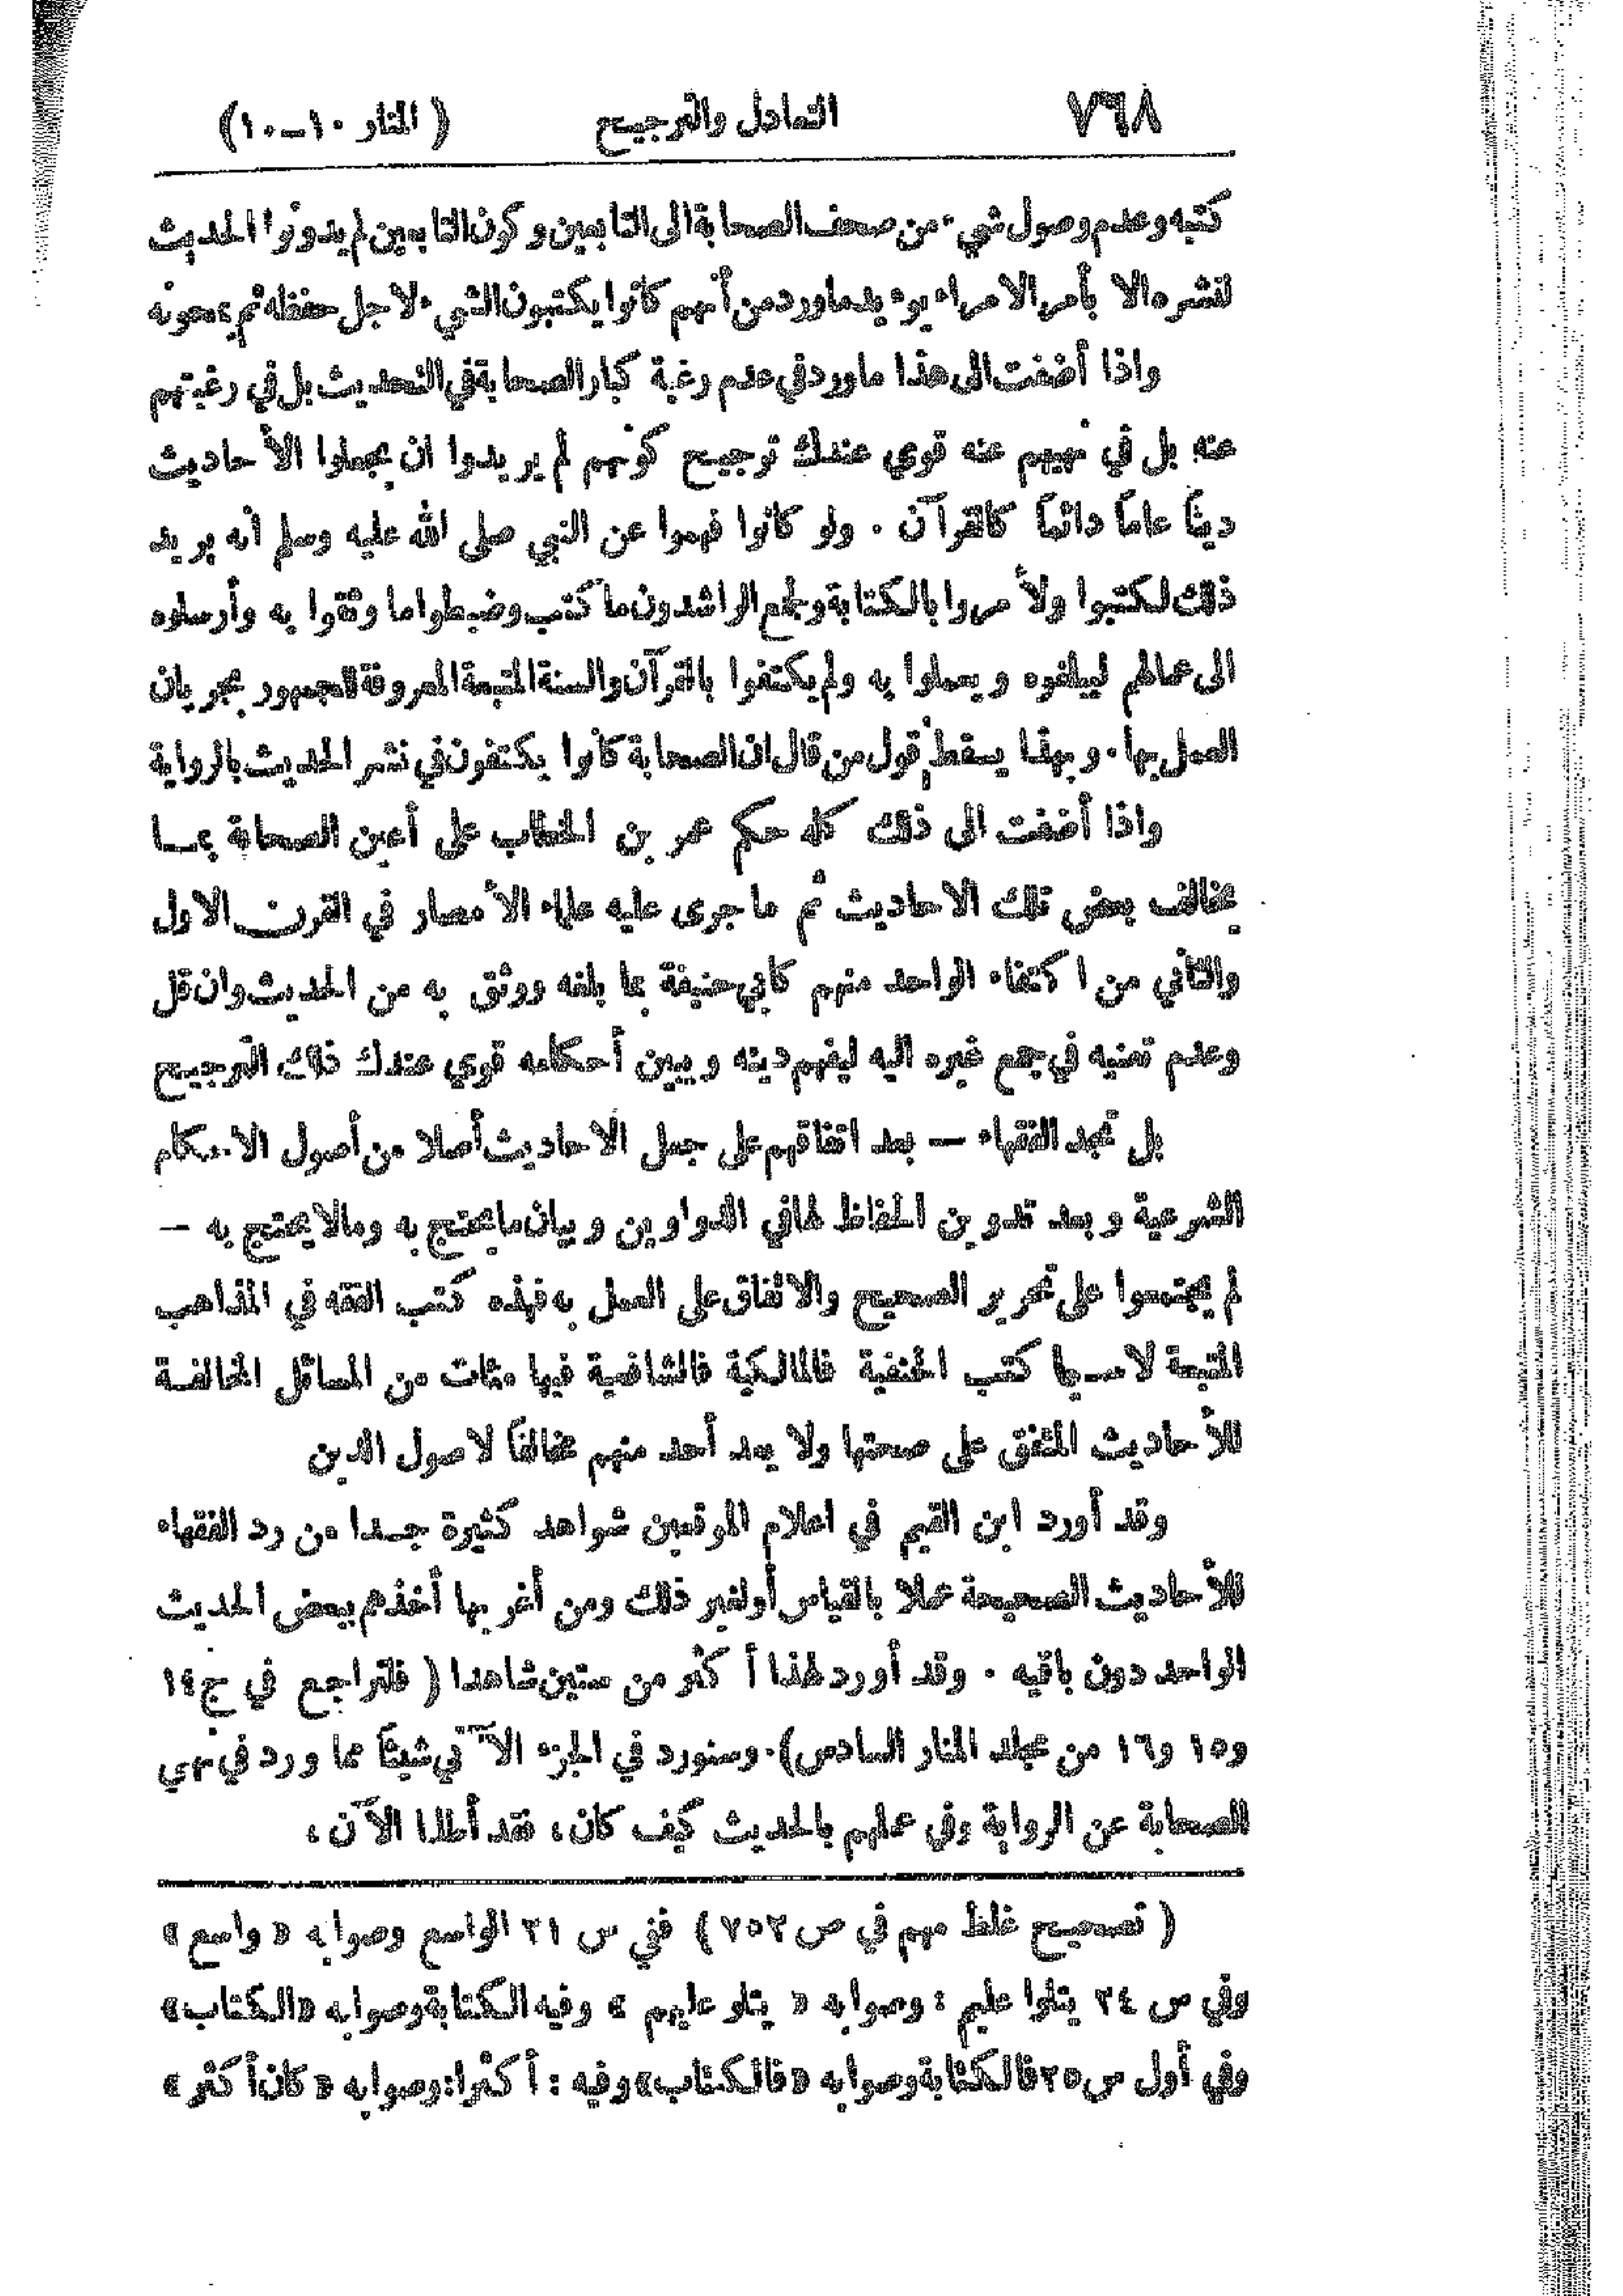 ٧٦٨ التعادل والترجيح ( المنار ١٠ــ١٠)
كتبه وعدم وصول شيء من صحف الصحابة الى التابعين وكون التابعين لم يدونوا الحديث
لنشره الا بأمر الامراء يؤيد ما ورد من أنهم كانوا يكتبون الشيء لاجل حفظه ثم يمحونه
واذا أضفت الى هذا ما ورد في عدم رغبة كبار الصحابة في التحديث بل في رغبتهم
عنه بل في نهيهم عنه قوي عندك ترجيح كونهم لم يريدوا ان يجعلوا الأحاديث
ديناً عاماً دائماً كالقرآن . ولو كانوا فهموا عن النبي صلى الله عليه وسلم انه يريد
ذلك لكتبوا ولأمروا بالكتابة ولجمع الراشدون ما كتب وضبطوا ما وثقوا به وأرسلوه
الى عمالهم ليبلغوه ويعملوا به ولم يكتفوا بالقرآن والسنة المتبعة المعروفة للجمهور بجريان
العمل بها . وبهذا يسقط قول من قال ان الصحابة كانوا يكتفون في نشر الحديث بالرواية
واذا أضفت الى ذلك كله حكم عمر بن الخطاب على أعين الصحابة بما
يخالف بعض تلك الاحاديث ثم ما جرى عليه علماء الأمصار في القرن الاول
والثاني من اكتفاء الواحد منهم كأبي حنيفة بما بلغه ووثق به من الحديث وان قل
وعدم تعنيه في جمع غيره اليه ليفهم دينه ويبين أحكامه قوي عندك ذلك الترجيح
بل تجد الفقهاء — بعد اتفاقهم على جعل الاحاديث أصلا من أصول الاحكام
الشرعية وبعد تدوين الحفاظ لها في الدواوين وبيان ما يحتج به وما لا يحتج به —
لم يجتمعوا على تحرير الصحيح والاتفاق على العمل به فهذه كتب الفقه في المذاهب
المتبعة لاسيما كتب الحنفية فالمالكية فالشافعية فيها مئات من المسائل المخالفة
للأحاديث المتفق على صحتها ولا يعد أحد منهم مخالفاً لاصول الدين
وقد أورد ابن القيم في اعلام الموقعين شواهد كثيرة جدا من رد الفقهاء
للأحاديث الصحيحة عملا بالقياس أو لغير ذلك ومن أغربها أخذهم ببعض الحديث
الواحد دون باقيه . وقد أورد لهذا أكثر من ستين شاهدا ( فلتراجع في ج ١٤
و١٥ و١٦ من مجلد المنار السادس). وسنورد في الجزء الآتي شيئاً مما ورد في نهي
الصحابة عن الرواية وفي عملهم بالحديث كيف كان، فقد أطلنا الآن،
( تصحيح غلط مهم في ص ٧٥٢) ففي س ٢١ الواسع وصوابه « واسع »
وفي س ٢٤ يتلوا عليم : وصوابه « يتلو عليهم » وفيه الكتابة وصوابه «الكتاب»
وفي أول س٢٥ فالكتابة وصوابه «فالكتاب» وفيه : أكثرا: وصوابه « كان أكثر »